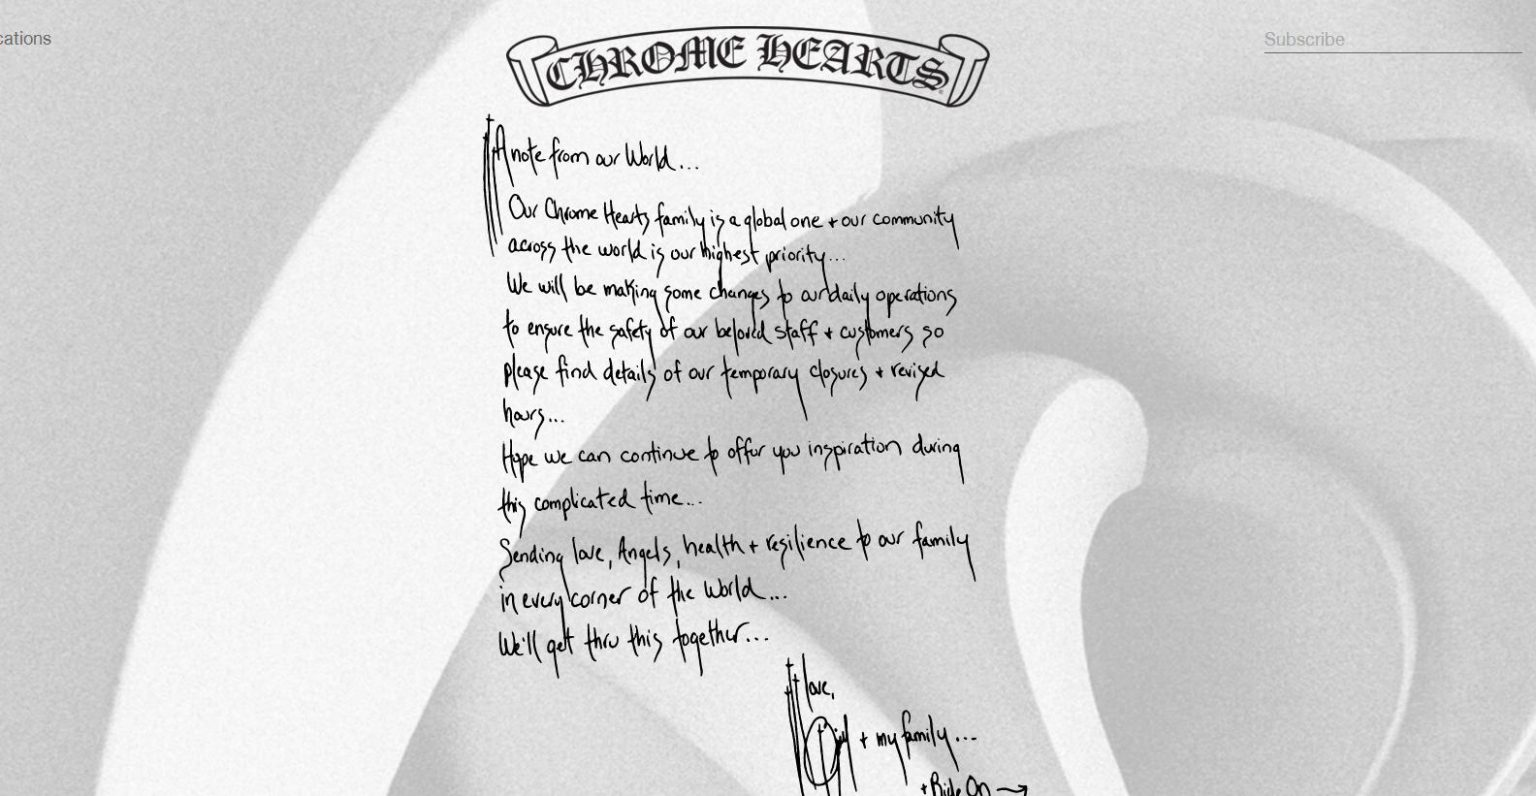 cations
CHROME HEARTS
Subscribe
A note from our World...
Our Chrome Hearts family is a global one + our community
across the world is our highest priority...
We will be making some changes to our daily operations
to ensure the safety of our beloved staff + customers so
please find details of our temporary closures + revised
hours...
Hope we can continue to offer you inspiration during
this complicated time...
Sending love, Angels, health + resilience to our family
in every corner of the World...
We'll get thru this together...
love,
+ my family...
+ Ride On →